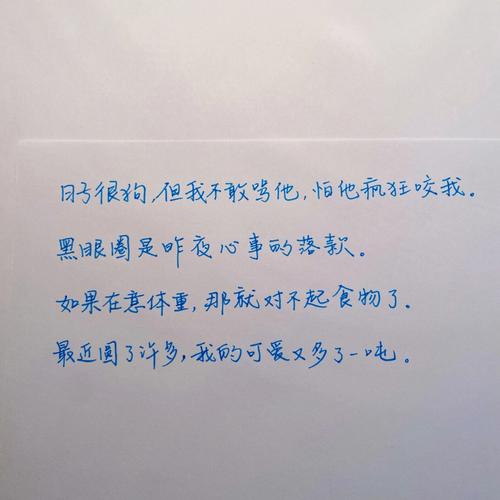 日子很狗,但我不敢骂他,怕他疯狂咬我。
黑眼圈是昨夜心事的落款。
如果在意体重,那就对不起食物了.
最近圆了许多,我的可爱又多了一吨。